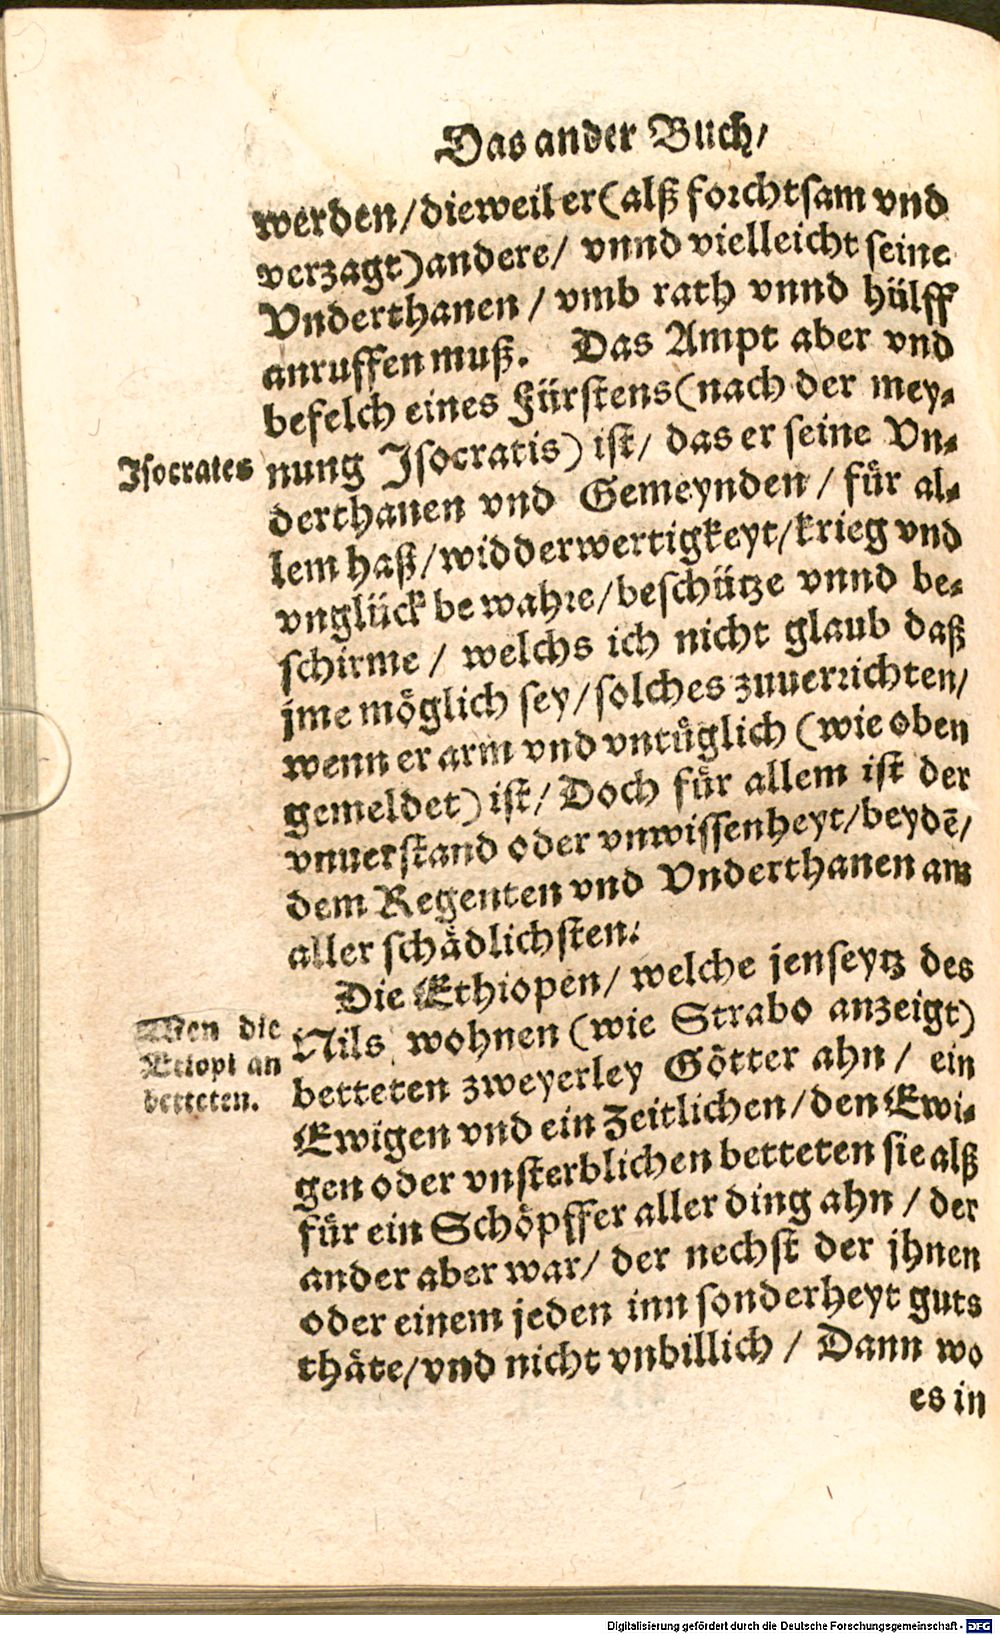 Das ander Buch/
werden/dieweil er(alß forchtsam vnd
verzagt)andere/ vnnd vielleicht seine
Vnderthanen / vmb rath vnnd hülff
anruffen muß. Das Ampt aber vnd
befelch eines Fürstens(nach der mey-
Isocrates
nung Isocratis) ist/ das er seine Vn-
derthanen vnd Gemeynden / für al-
lem haß/widderwertigkeyt/krieg vnd
vnglück bewahre/beschütze vnnd be-
schirme / welchs ich nicht glaub daß
jme möglich sey/solches zuuerrichten/
wenn er arm vnd vntüglich (wie oben
gemeldet) ist/ Doch für allem ist der
vnuerstand oder vnwissenheyt/beydē/
dem Regenten vnd Vnderthanen am
aller schädlichsten.
Die Ethiopen/ welche jenseytz des
Wen die
Nils wohnen (wie Strabo anzeigt)
Aetiopi an
betteten zweyerley Götter ahn / ein
betteten.
Ewigen vnd ein Zeitlichen/den Ewi-
gen oder vnsterblichen betteten sie alß
für ein Schöpffer aller ding ahn / der
ander aber war/ der nechst der jhnen
oder einem jeden inn sonderheyt guts
thäte/vnd nicht vnbillich / Dann wo
es in
Digitalisierung gefördert durch die Deutsche Forschungsgemeinschaft - DFG